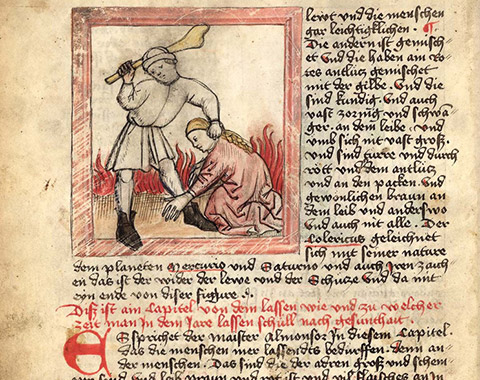 lewt vnd die menschen
gar leichtigklichen · ¶
Die andern ist gemisch
et Vnd die haben am Ro
tes antlütz gemischet
mit der gilbe · Vnd die
sind kundig · Vnd auch
vast zornig vnd schwa
ger · an dem leibe · vnd
vmb sich nit vast groß ·
vnd sind türre vnd durch
rött vnd dem antlütz
vnd an den packen · Vnd
gewonlichen braun an
dem leib vnd anderswo
Vnd auch nit alle · Der
Colericus geleichnet
sich mit seiner nature
dem planeten Mercurio vnd Saturno vnd auch
en das ist der wider der lewe vnd der Schütze Vnd da mit
eyn ende von diser figure ·
Diß ist am Capitel von dem lassen wie vnd zu welicher
zeit man in dem Jare lassen schüll nach gesuntheit ·
ES sprichet der maister Almonsor In disem Capitel ·
das die menschen mer lassendts bedürffen · denn an
der menschen · Das sind die der adren groß vnd schein